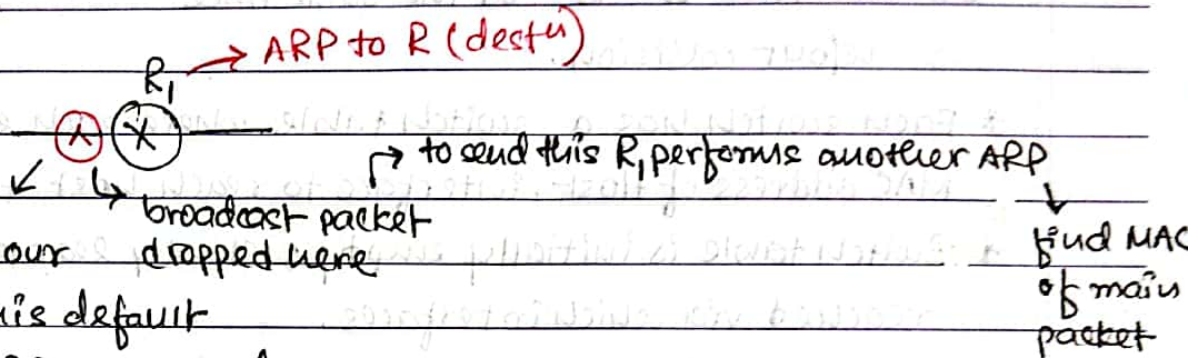 ARP to R (destn)
R1
to send this R1 performs another ARP
broadcast packet
dropped here
find MAC
of main
packet
our
is default